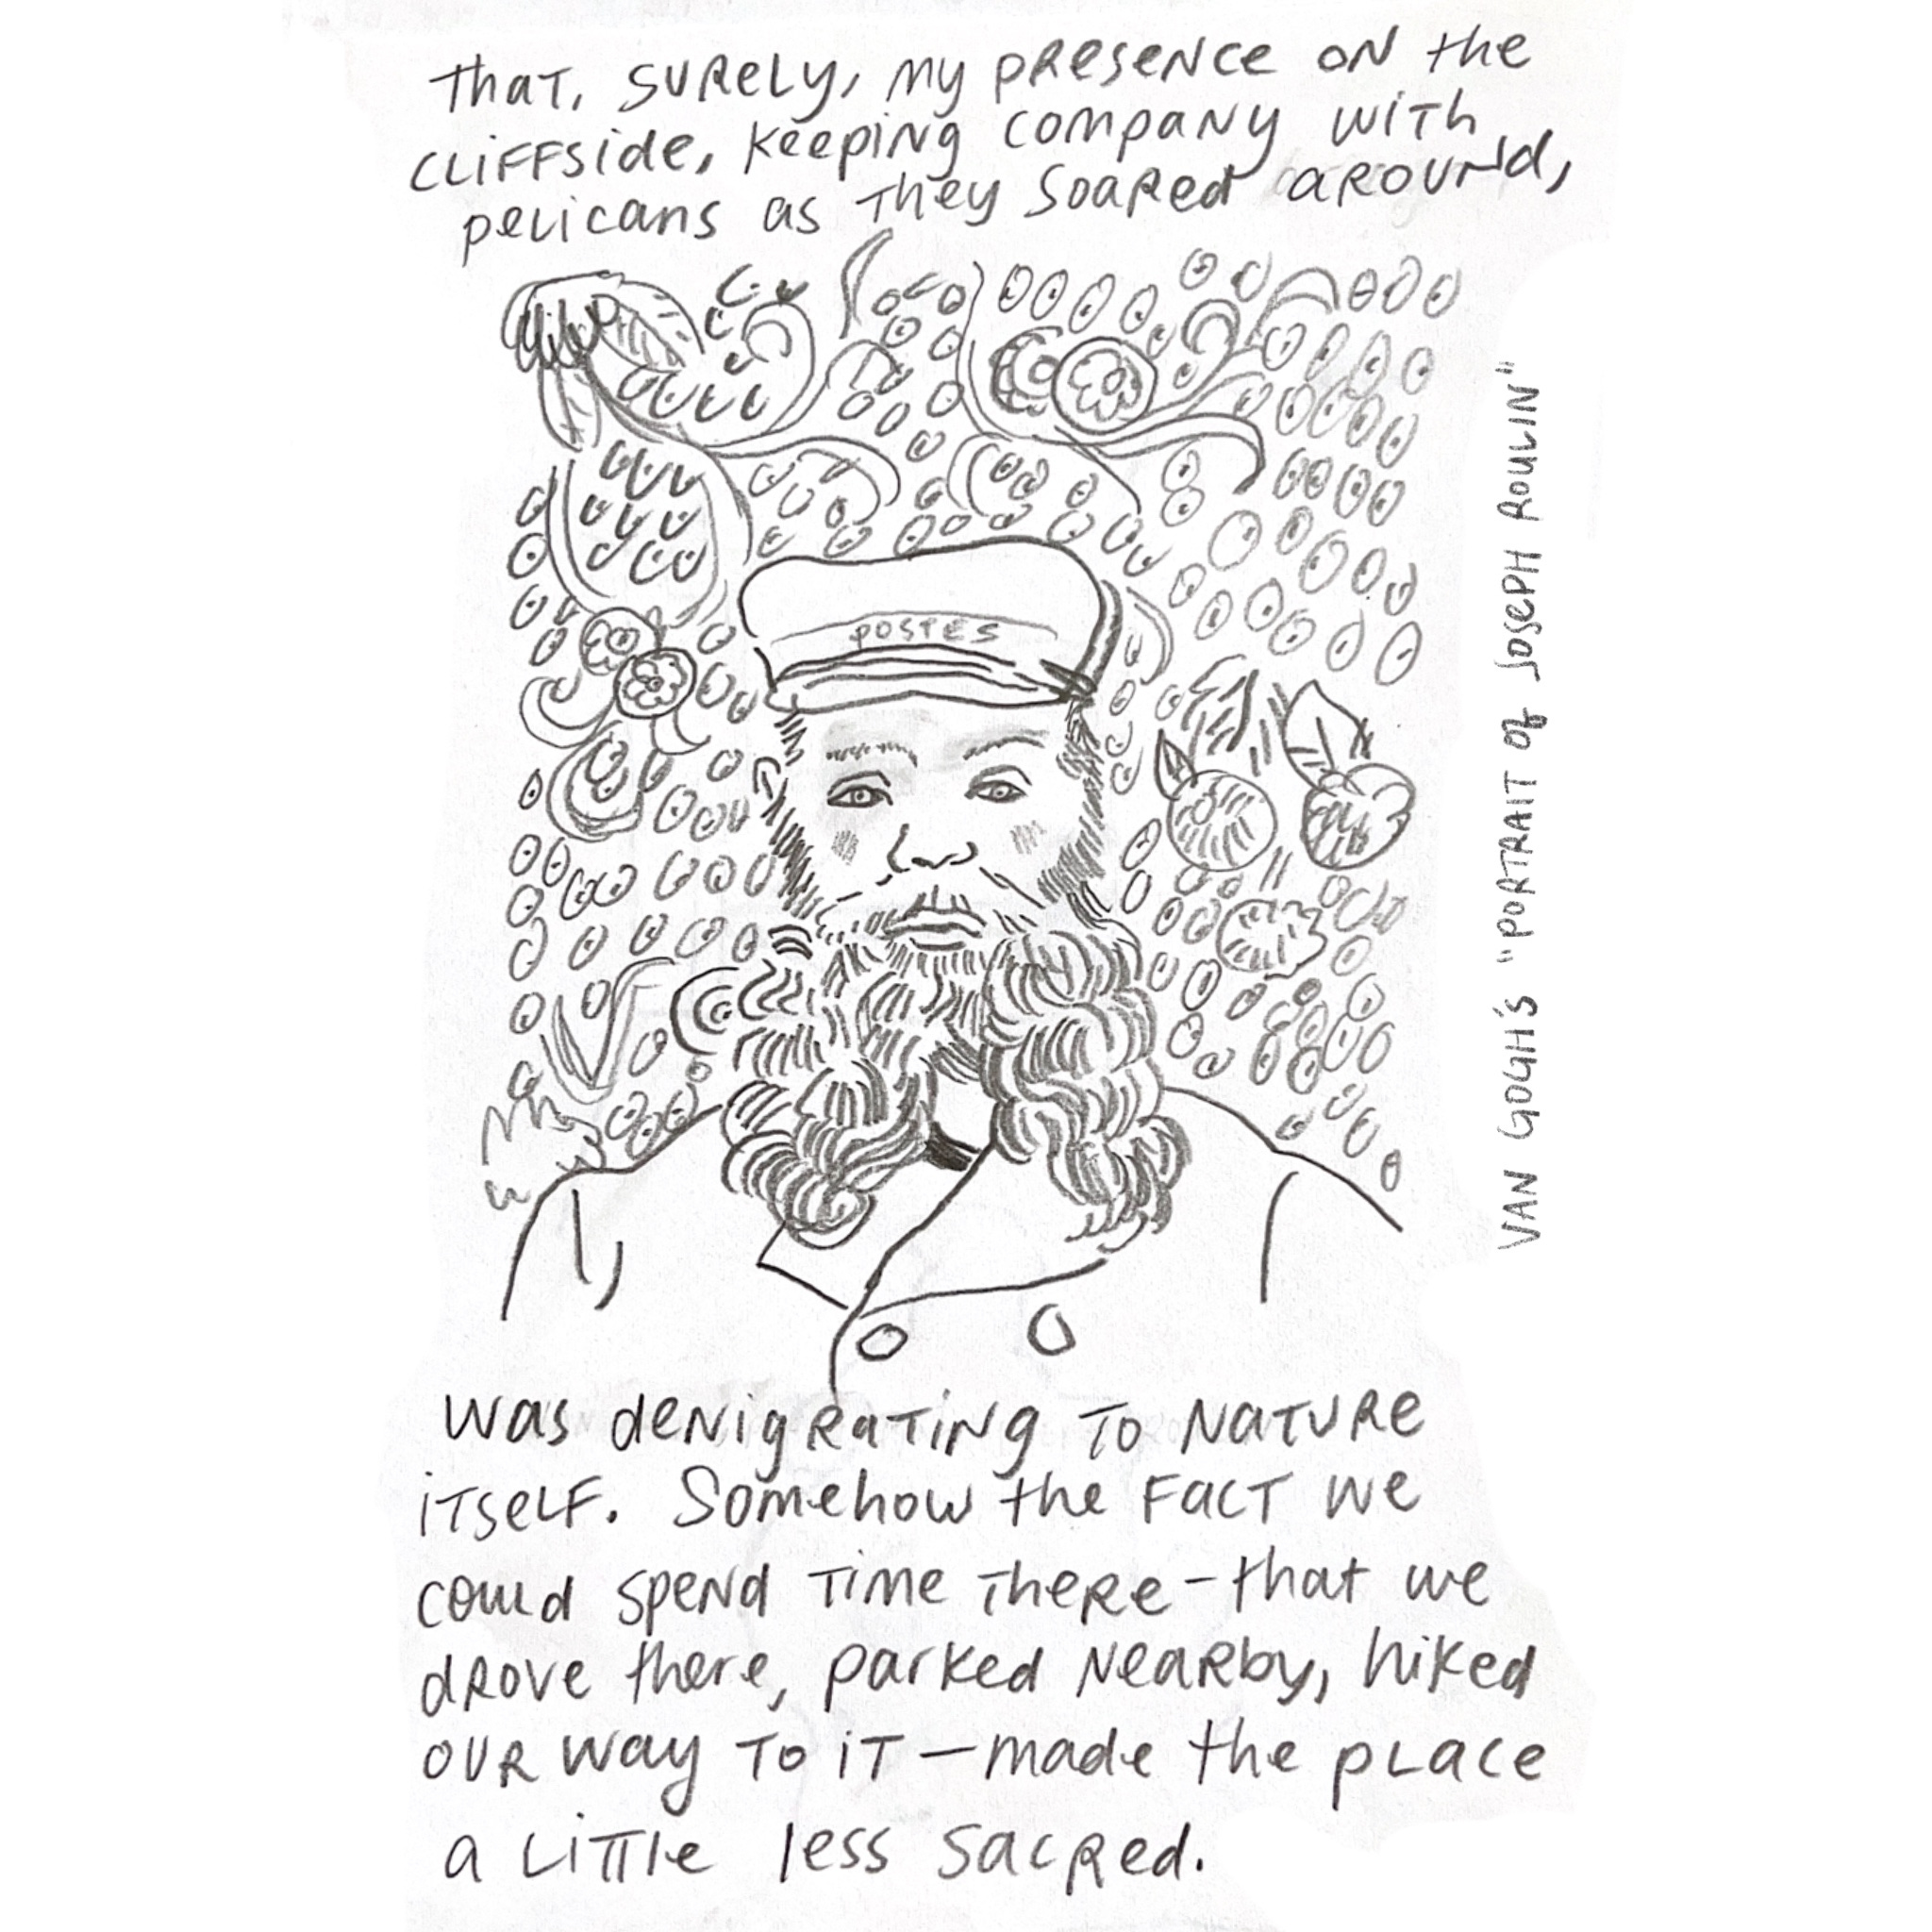 that, surely, my presence on the
cliffside, keeping company with
pelicans as they soared around,
POSTES
VAN GOGH'S "PORTRAIT of JOSEPH ROULIN"
was denigrating to nature
itself. Somehow the fact we
could spend time there - that we
drove there, parked nearby, hiked
our way to it — made the place
a little less sacred.